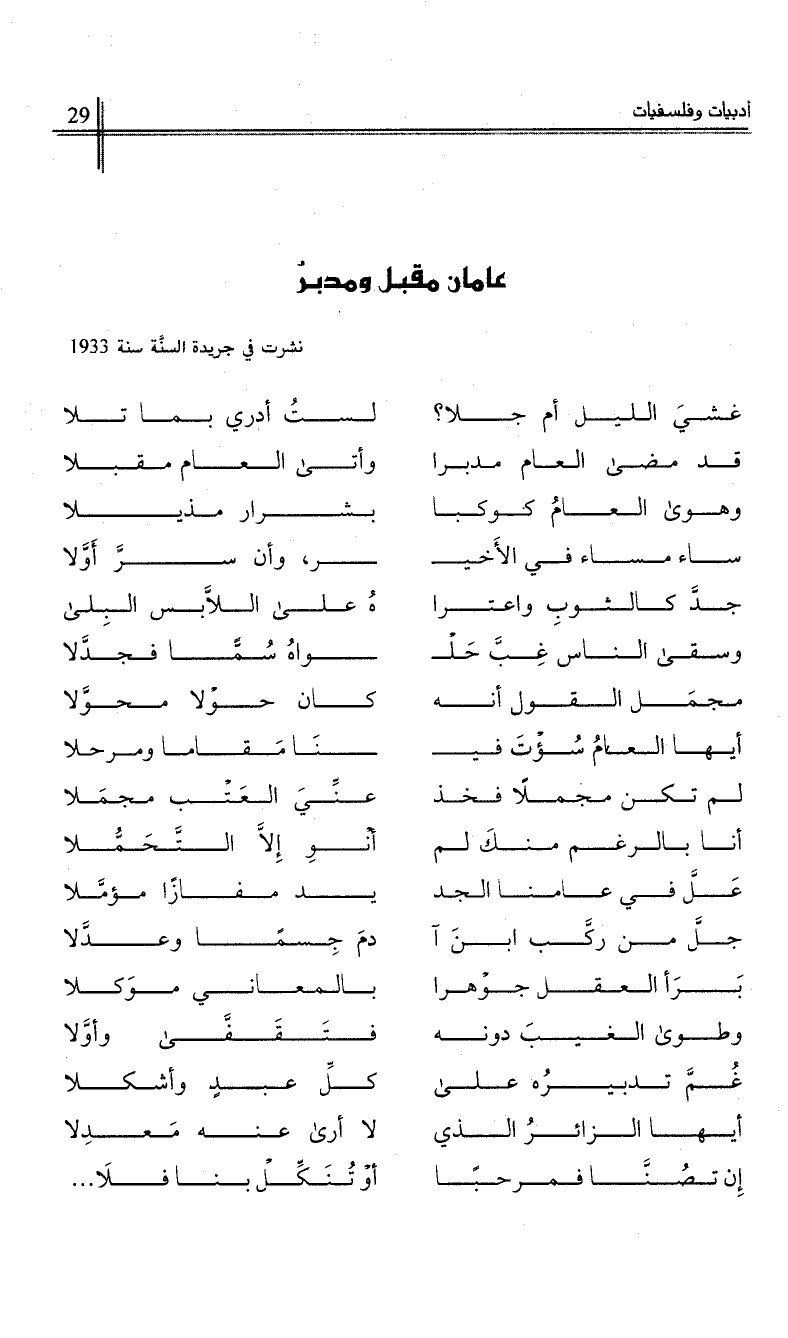 أدبيات وفلسفيات 29
عامان مقبل ومدبرُ
نشرت في جريدة السنَّة سنة 1933
غشيَ الليل أم جلا؟ لستُ أدري بما تلا
قد مضىٰ العام مدبرا وأتىٰ العام مقبلا
وهوىٰ العامُ كوكبا بشرار مذيلا
ساء مساء في الأَخيـ ـر، وأن سرَّ أوَّلا
جدَّ كالثوبِ واعترا هُ علىٰ اللاَّبس البِلىٰ
وسقىٰ الناس غِبَّ حَلْـ ـواهُ سُمًّا فجدَّلا
مجمَل القول أنه كان حوْلا محوَّلا
أيها العامُ سُؤْتَ فيـ ـنَا مَقاما ومرحلا
لم تكن مجملًا فخذ عنِّيَ العَتْب مجمَلا
أنا بالرغم منكَ لم أنْوِ إلاَّ التَّحَمُّلا
عَلَّ في عامنا الجد يد مفازًا مؤمَّلا
جلَّ من ركَّب ابنَ آ دمَ جِسمًا وعدَّلا
بَرَأ العقل جوْهرا بالمعاني موَكلا
وطوىٰ الغيبَ دونه فتَقَفَّىٰ وأوَّلا
غُمَّ تدبيرُه علىٰ كلِّ عبدٍ وأشكلا
أيها الزائرُ الذي لا أرىٰ عنه مَعدِلا
إن تصُنَّا فمرحبًا أوْ تُنَكِّلْ بنا فلَا...